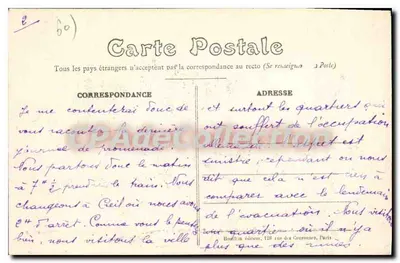 2
60)
Carte Postale
Tous les pays étrangers n'acceptent pas la correspondance au recto (Se renseigner à la Poste)
CORRESPONDANCE
Je me contenterai donc de
vous raconter
journée promenade.
Nous partons donc le matin
à 7h prendre le train. Nous
changeons à Creil où nous avons
d'arrêt. Comme vous le pensez
bien, nous visitons la ville
ADRESSE
et surtout les quartiers qui
ont souffert de l'occupation
est
sinistre cependant on nous
dit que cela n'est rien à
comparer avec le lendemain
de l'évacuation. Nous visitons
un quartier où il n'y a
plus que des ruines.